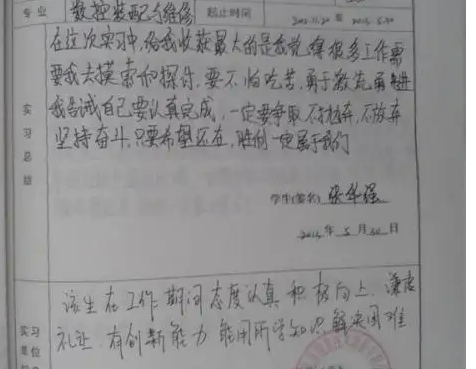 专业 数控装配与维修 起止时间 年
在这次实习中,给我收获最大的是我觉得很多工作需
要我去摸索和探讨,要不怕吃苦,勇于激流勇进
我告诫自己要认真完成,一定要争取不抛弃,不放弃
坚持奋斗,只要希望还在,胜利一定属于我们
实习总结
学生(签名) 张华强
年 5 月 30 日
该生在工作期间态度认真积极向上,谦虚
礼让 有创新能力 能用所学知识解决困难
实习
单位